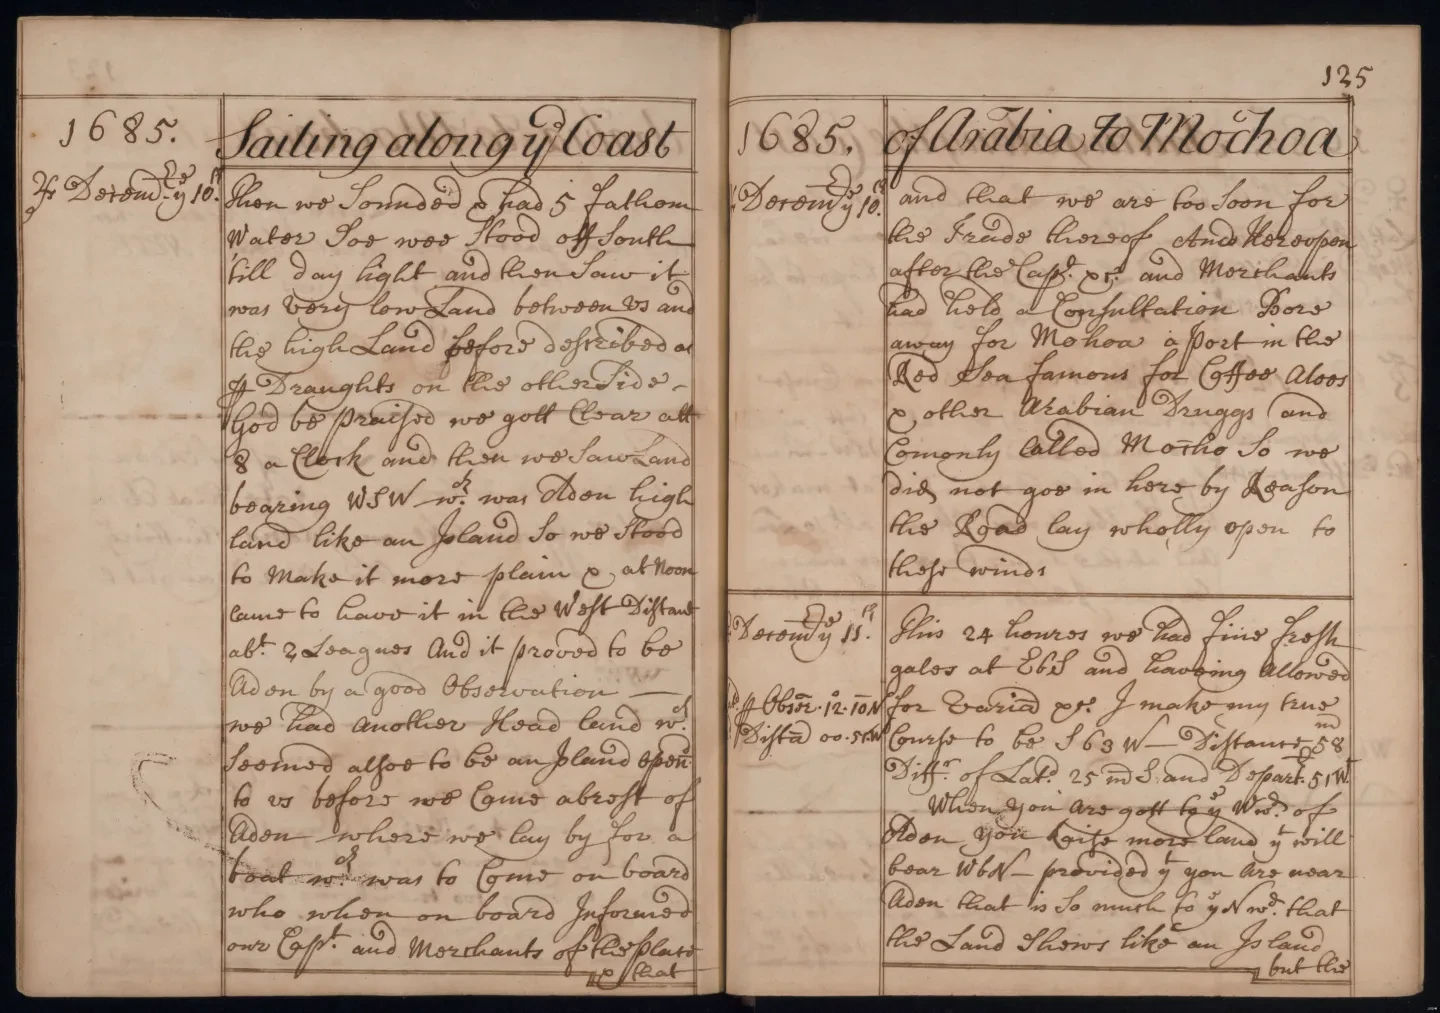 1685.
Sailing along yᵉ Coast
♃ Decemᵇ yᵉ 10ᵗʰ.
Then we Sounded & had 5 fathom
Water Soe wee Stood off South
till day light and then Saw it
was very low Land between vs and
the high Land before described as
⅌ Draughts on the other Side –
God be praised we gott Clear att
8 a Clock and then we Saw Land
bearing WSW – wᶜʰ was Aden high
land like an Island So we Stood
to Make it more plain & at Noon
came to have it in the West Distant
abᵗ 2 Leagues And it proved to be
Aden by a good Observation —
we had another Head land wᶜʰ
Seemed alsoe to be an Island open'd
to vs before we Came abrest of
Aden where we lay by for a
boat wᶜʰ was to Come on board
who when on board Informed
our Capᵗ. and Merchants of the place
& that
125
1685.
of Arabia to Mochoa
Decemᵇ yᵉ 10ᵗʰ.
and that we are too Soon for
the Trade thereof And Hereopon
after the Capᵗ. &cᵃ. and Merchants
had held a Consultation Bore
away for Mohoa a port in the
Red Sea famous for Coffee Aloes
& other Arabian Druggs and
Comonly Called Mocho So we
did not goe in here by Reason
the Road lay wholly open to
these winds
Decemᵇ yᵉ 11ᵗʰ.
⅌ Obser. 12.10 N
Distā 00.51 W
This 24 houres we had fine fresh
gales at EbS and haveing Allowed
for Variā &cᵃ. I make my true
Course to be S 63 W – Distance 58 mˢ
Diffʳ. of Latᵈ. 25 mˢ S. and Depart. 51 Wᵗ
When you are gott to yᵉ Wwᵈ. of
Aden you Raise more land yᵗ will
bear WbN – provided yᵗ you are near
Aden that is So much to yᵉ Nwᵈ. that
the Land Shews like an Island
but the